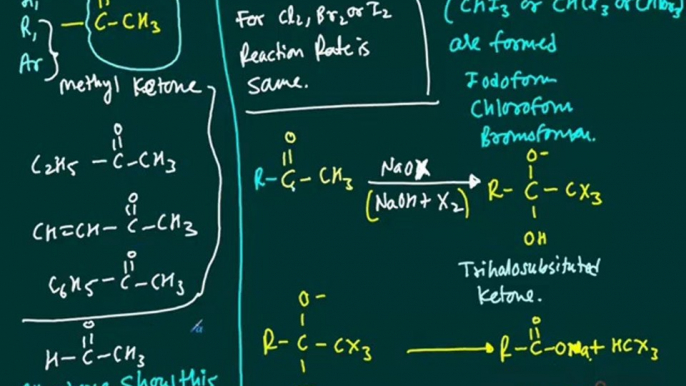 R,
Ar
C-CH3
methyl Ketone
C2H5-C-CH3
O
CH=CH-C-CH3
O
C6H5-C-CH3
O
H-C-CH3
O
For Cl2, Br2 or I2
Reaction Rate is
same.
(CHI3 or CHCl3 or CHBr3)
are formed
Iodoform
Chloroform
O
R-C-CH3
NaOX
(NaOH + X2)
O-
R-C-CX3
OH
Trihalosubsituted
Ketone.
O-
R-C-CX3
O
R-C-ONa + HCX3